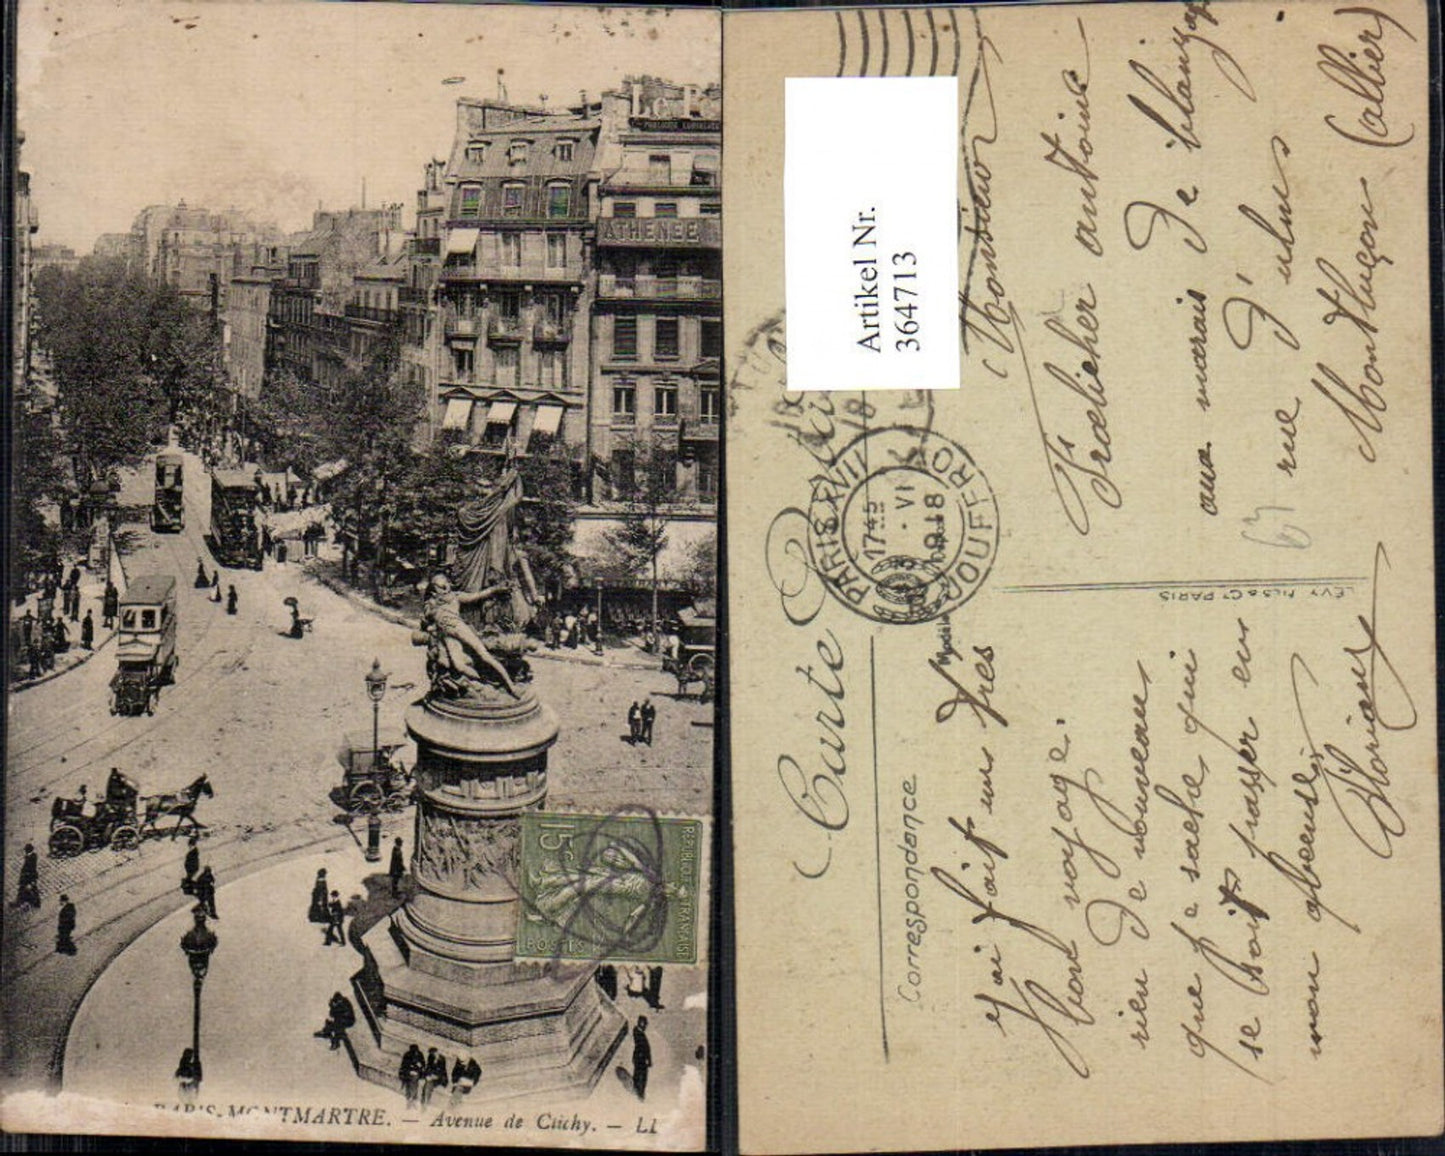 Le P
ATHENEE
15c
REPUBLIQUE FRANÇAISE
POSTES
PARIS-MONTMARTRE. — Avenue de Clichy. — LL
Artikel Nr.
364713
Carte
PARIS XVIII
17 45
VI
18
Correspondance
LÉVY FILS & Cie PARIS
Monsieur
antoine
aux marais De
rue D'
Montluçon (allier)
67
j'ai fait un Tres
bon voyage.
rien De nouveau
que je sache qui
se soit passer en
mon absence